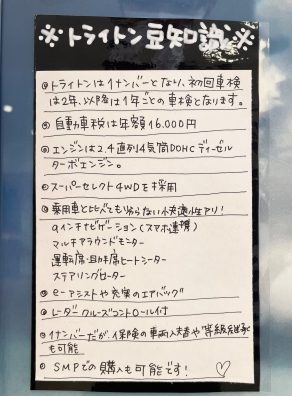 ※トライトン豆知識※
◎トライトンは1ナンバーとなり、初回車検
は2年、以降は1年ごとの車検となります。
◎自動車税は年額16.000円
◎エンジンは2.4直列4気筒DOHCディーゼル
ターボエンジン。
◎スーパーセレクト4WDを採用
◎乗用車と比べても劣らない快適性アリ!
9インチナビゲーション(スマホ連携)
マルチアラウンドモニター
運転席・助手席ヒートシーター
ステアリングヒーター
◎e-アシストや充実のエアバッグ
◎レーダークルーズコントロール付
◎1ナンバーだが、保険の車両入替や等級継承
も可能
◎SMPでの購入も可能です! ♡